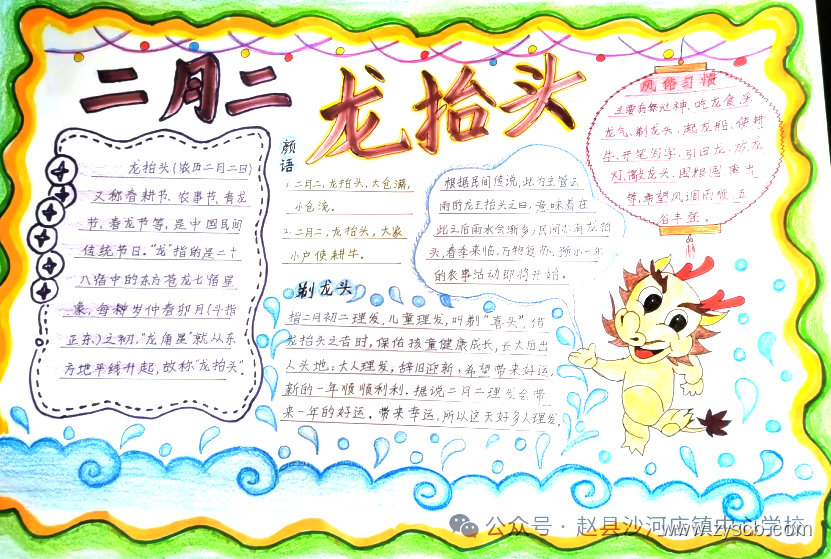 二月二
龙抬头
龙抬头(农历二月二日)
又称春耕节、农事节、青龙
节、春龙节等,是中国民间
传统节日。"龙"指的是二十
八宿中的东方苍龙七宿星
象,每种岁仲春卯月(斗指
正东、)之初,"龙角星"就从东
方地平线升起,故称"龙抬头"。
颜语
1.二月二,龙抬头,大仓满,
小仓流。
2.二月二,龙抬头,大家
小户使耕牛。
根据民间传说,此为主管云
雨的龙王抬头之日,意味着在
此之后雨水会渐多,民间亦有龙抬
头,春季来临,万物复苏,预示一年
的农事活动即将开始。
风俗习惯
主要有祭灶神,吃龙食,采
龙气,剃龙头,起龙船,使耕
牛,开笔写字,引田龙,放龙
灯,敲龙头,围粮囤熏虫
等,希望风调雨顺五
谷丰登。
剃龙头
指二月初二理发,儿童理发,叫剃"喜头",借
龙抬头之吉时,保佑孩童健康成长,长大后出
人头地;大人理发,辞旧迎新,希望带来好运,
新的一年顺顺利利。据说二月二理发会带
来一年的好运。带来幸运,所以这天好多人理发。
公众号·赵县沙河店镇中心学校
www.zyscb.com